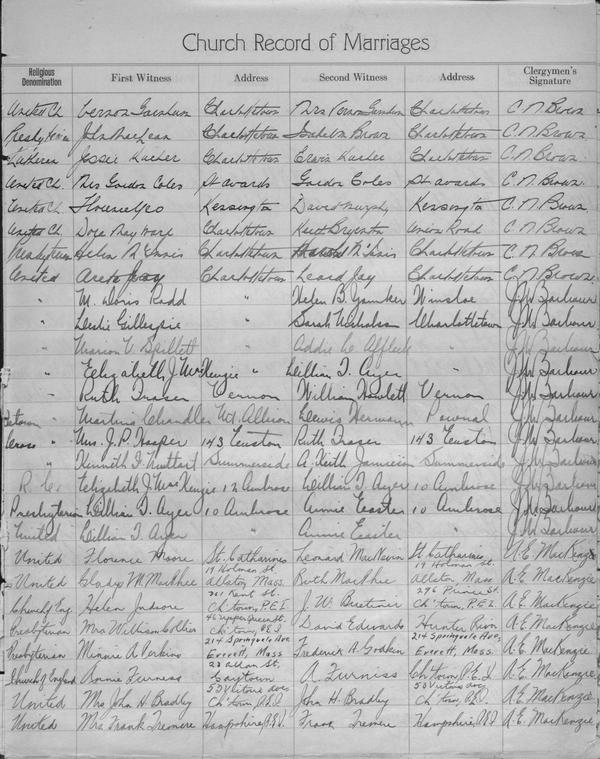 Church Record of Marriages
Religious Denomination First Witness Address Second Witness Address Clergymen's Signature
United Ch. Vernon Charlottetown Mrs Vernon Charlottetown C. N. Brown
John MacLean Charlottetown Brown Charlottetown C. N. Brown
Lutheran Charlottetown Charlottetown C. N. Brown
United Ch. Mrs Gordon Coles Gordon Coles C. N. Brown
United Ch. Florence Yeo Kensington David Murphy Kensington C. N. Brown
United Ch. Charlottetown Union Road C. N. Brown
Presbyterian Helen Charlottetown Charlottetown C. N. Brown
United Jay Charlottetown Jay Charlottetown C. N. Brown
" M. Doris Rodd " Helen B. Younker Winsloe J. W. Barbour
" Leslie Gillespie " Sarah Nicholson Charlottetown J. W. Barbour
" Marion V. Spillett " Addie C. Affleck " J. W. Barbour
" Elizabeth J. MacKenzie " William T. Ayer " J. W. Barbour
" Ruth Fraser Vernon William Howlett Vernon J. W. Barbour
" Chandler Mt. Allison Lewis Pownal J. W. Barbour
" Mrs. J. P. Hooper 143 Euston Ruth Fraser 143 Euston J. W. Barbour
" Kenneth Summerside A. Keith Jamieson Summerside J. W. Barbour
R. C. Elizabeth J. MacKenzie 12 Ambrose William T. Ayer 10 Ambrose J. W. Barbour
Presbyterian William T. Ayer 10 Ambrose Annie Easter 10 Ambrose J. W. Barbour
United William T. Ayer " Annie Easter " J. W. Barbour
United Florence Moore St. Catharines Leonard MacNevin St. Catharines A. E. MacKenzie
United Gladys M. MacPhee 19 Holman St. Allston, Mass. Ruth MacPhee 19 Holman St. Allston, Mass A. E. MacKenzie
Church of Eng. Helen 201 Kent St. Ch'town, P.E.I. J. W. Ch'town, P.E.I. A. E. MacKenzie
Presbyterian Mrs William Collier Ch'town, P.E.I. David Edwards Hunter River A. E. MacKenzie
Presbyterian Minnie A. Perkins 214 Springvale Ave. Everett, Mass Frederick A. Godkin 214 Springvale Ave. Everett, Mass. A. E. MacKenzie
Church of England Annie Furness A. Furness Ch'town, P.E.I. A. E. MacKenzie
United Mrs John H. Bradley 53 Victoria Ave. Ch'town, P.E.I. John H. Bradley 53 Victoria Ave. Ch'town, P.E.I. A. E. MacKenzie
United Mrs Frank Hampshire, P.E.I. Frank Hampshire, P.E.I. A. E. MacKenzie